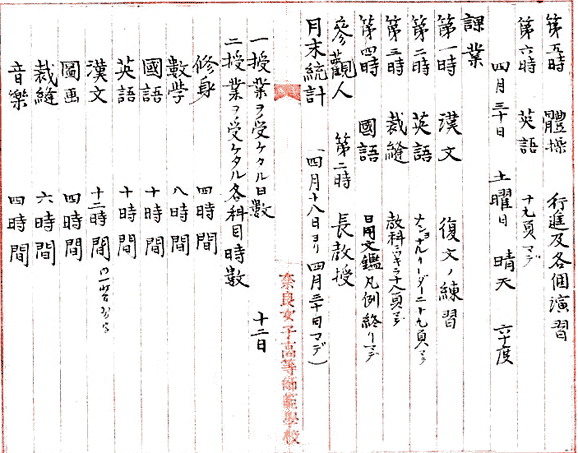 第五時　體操　行進及各個演習
第六時　英語　十九頁マデ
四月三十日　土曜日　晴天　六十度
課業
第一時　漢文　復文ノ練習
第二時　英語　ナショナルリーダー二十九頁マデ
第三時　裁縫　教科 十八頁マデ
第四時　國語　日用文鑑凡例終リマデ
參觀人　第二時　長教授
月末統計　（四月十八日ヨリ四月三十日マデ）
一授業ヲ受ケタル日數　十二日
二授業ヲ受ケタル各科目時數
修身　四時間
數學　八時間
國語　十時間
英語　十時間
漢文　十二時間
圖画　四時間
裁縫　六時間
音樂　四時間
奈良女子高等師範學校